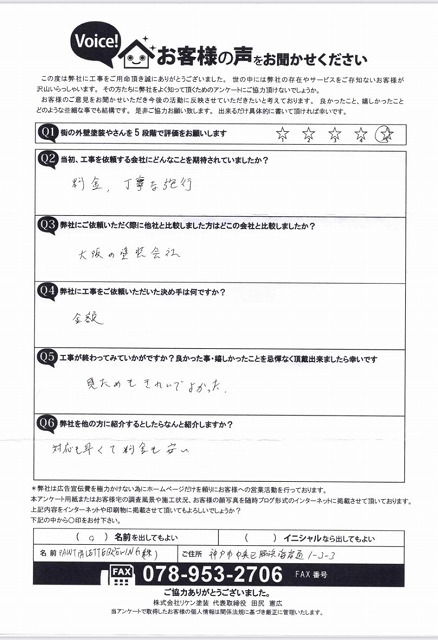 Voice!
お客様の声をお聞かせください
この度は弊社に工事をご用命頂き誠にありがとうございました。世の中には弊社の存在やサービスをご存知ないお客様が
沢山いらっしゃいます。その方たちに弊社をよく知って頂くためのアンケートにご協力頂けないでしょうか。
お客様のご意見をお聞かせいただき今後の活動に反映させていただきたいと考えております。良かったこと、嬉しかったこと
どのような些細な事でも結構です。是非ご協力お願い致します。出来るだけ具体的に書いて頂ければ幸いです。
Q1 街の外壁塗装やさんを5段階で評価をお願いします
Q2 当初、工事を依頼する会社にどんなことを期待されていましたか?
料金、丁寧な施行
Q3 弊社にご依頼いただく際に他社と比較しました方はどこの会社と比較しましたか?
大阪の塗装会社
Q4 弊社に工事をご依頼いただいた決め手は何ですか?
金額
Q5 工事が終わってみていかがですか?良かった事・嬉しかったことを忌憚なく頂戴出来ましたら幸いです
見ためもきれいでよかった。
Q6 弊社を他の方に紹介するとしたらなんと紹介しますか?
対応も早くて料金も安い
*弊社は広告宣伝費を極力かけない為にホームページだけを頼りにお客様への営業活動を行っております。
本アンケート用紙またはお客様宅の調査風景や施工状況、お客様の顔写真を随時ブログ形式のインターネットに掲載させて頂いております。
上記内容をインターネットや印刷物に掲載させて頂いてもよろしいでしょうか?
下記の中から○印をお付け下さい。
( ○ ) 名前を出してもよい ( ) イニシャルなら出してもよい
名前 (株) ご住所 神戸市中央区 1-3-3
FAX 078-953-2706 FAX番号
ご協力ありがとうございました。
株式会社リケン塗装 代表取締役 田尻 憲広
当アンケートで取得したお客様の個人情報は関係法規に基づき厳正に管理いたします。